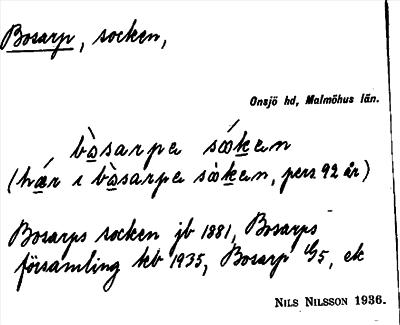 Bosarp, socken,
Onsjö hd, Malmöhus län.
bòsarpa sókan
(hær i bòsarpa sòkan, pers 92 år)
Bosarps socken jb 1881, Bosarps
församling kb 1935, Bosarp G5, ek
NILS NILSSON 1936.